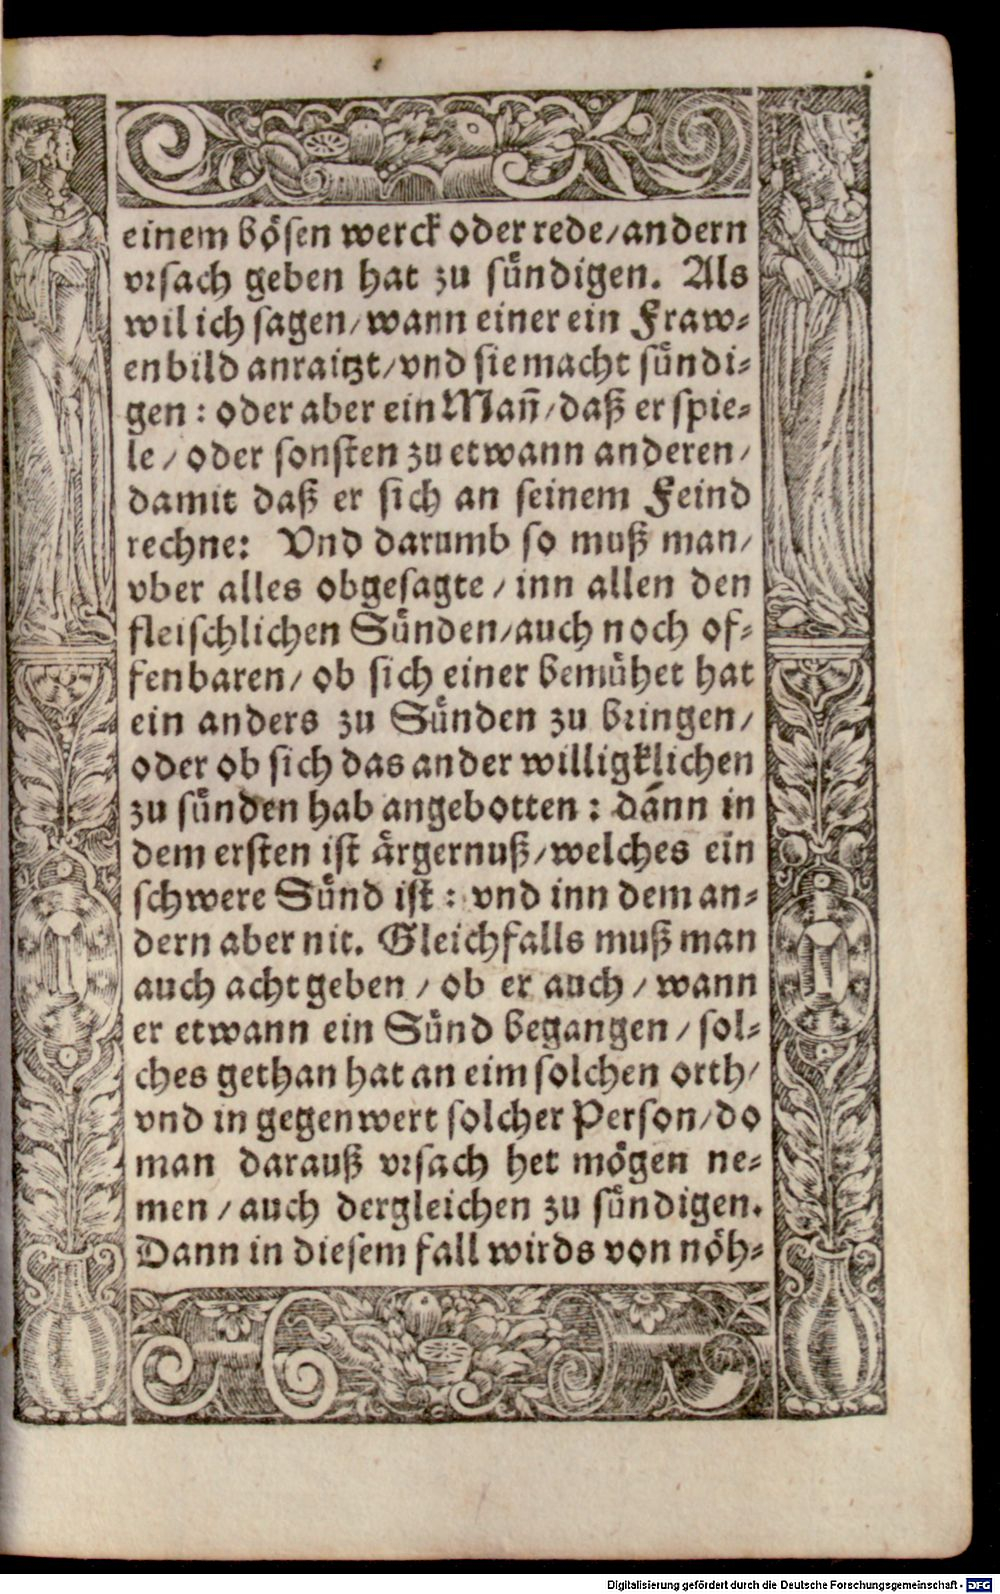 einem bösen werck oder rede/andern
vrsach geben hat zu sündigen. Als
wil ich sagen/wann einer ein Fraw-
enbild anraitzt/vnd sie macht sündi-
gen: oder aber ein Mañ/daß er spie-
le/oder sonsten zu etwann anderen/
damit daß er sich an seinem Feind
rechne: Vnd darumb so muß man/
vber alles obgesagte/inn allen den
fleischlichen Sünden/auch noch of-
fenbaren/ob sich einer bemühet hat
ein anders zu Sünden zu bringen/
oder ob sich das ander willigklichen
zu sünden hab angebotten: dann in
dem ersten ist ärgernuß/welches ein
schwere Sünd ist: vnd inn dem an-
dern aber nit. Gleichfalls muß man
auch acht geben/ob er auch/wann
er etwann ein Sünd begangen/sol-
ches gethan hat an eim solchen orth/
vnd in gegenwert solcher Person/do
man darauß vrsach het mögen ne-
men/auch dergleichen zu sündigen.
Dann in diesem fall wirds von nöh-
Digitalisierung gefördert durch die Deutsche Forschungsgemeinschaft - DFG